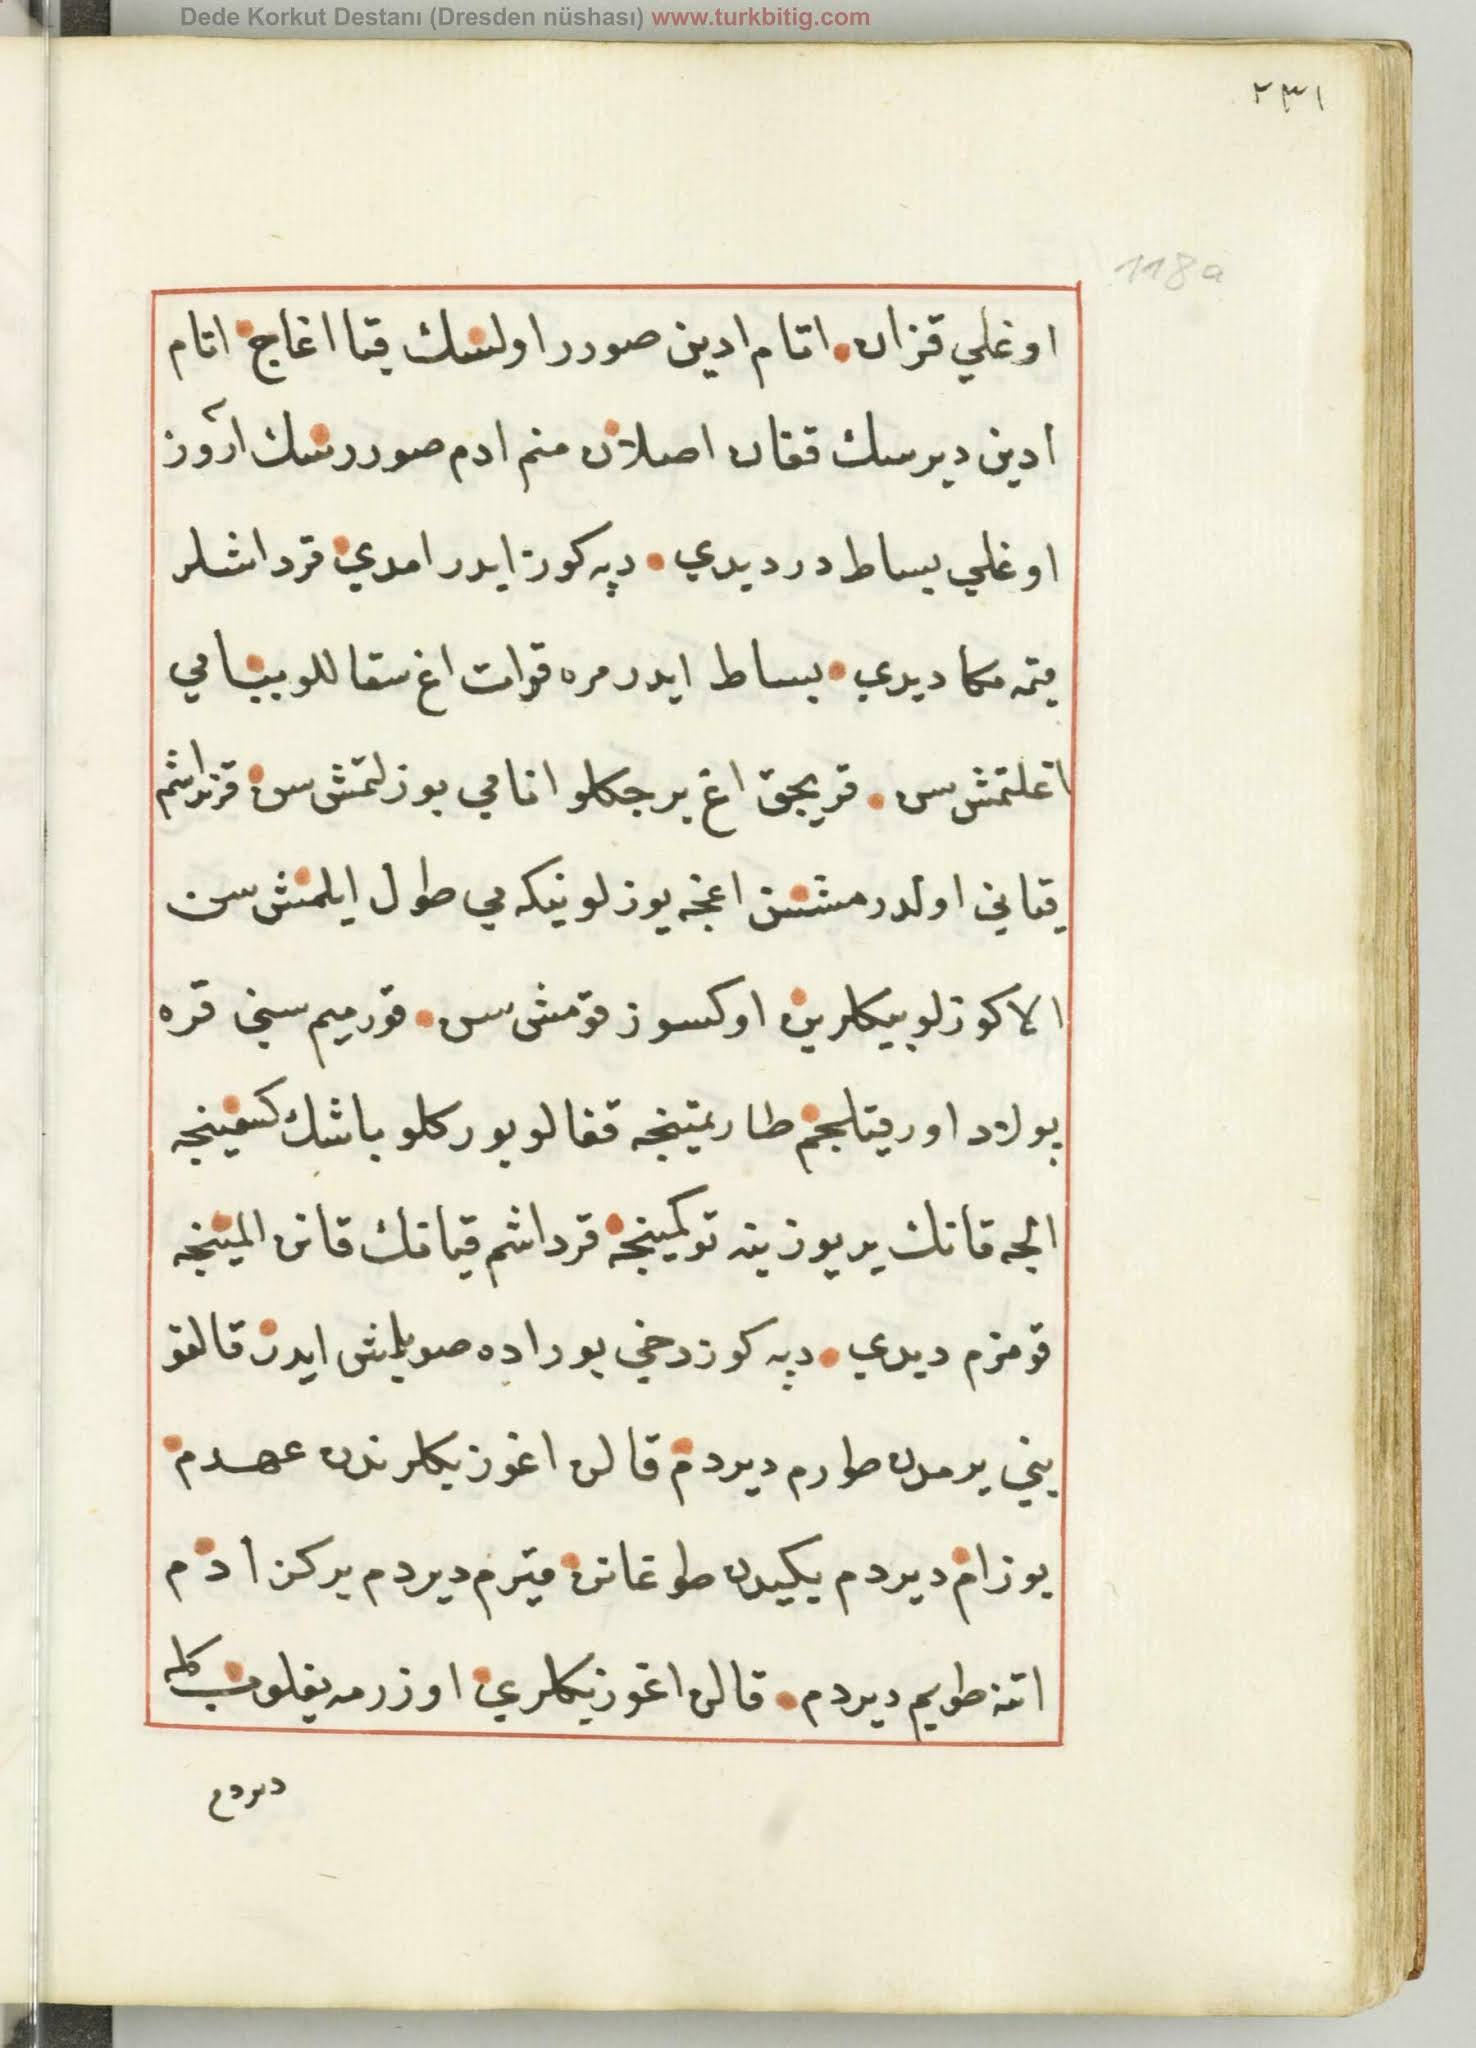 Dede Korkut Destanı (Dresden nüshası) www.turkbitig.com
٢٣١
118a
اوغلي قزان اتام ادين صورر اولسك قبا اغاج اتام
ادين ديرسك قغان اصلان منم ادم صوررسك اروز
اوغلي بساط در ديدي دپه كوز ايدر امدي قرداشلر
يتمه مكا ديدي بساط ايدر مره قوات اغ سقاللو بابامي
اغلتمش سن قريجق اغ برجكلو انامي بوزلتمش سن قرنداشم
قياني اولدرمشسن اغجه يوزلو ينكه مي طول ايلمش سن
الا كوزلو بيكلرين اوكسوز قومش سن قورميم سني قره
پولاد اوز قيلجم طارتمينجه قفالو بوركلو باشك كسمينجه
الجه قانك ير يوزينه توكمينجه قرداشم قيانك قانن المينجه
قومزم ديدي دپه كوز دخي بوراده صويلمش ايدر قالقو
بني يرمدن طورم ديردم قالن اغوز بكلرندن عهدم
بوزام ديردم يكيدن طوغانن قيرم ديردم بر كز ادم
اتنه طويم ديردم قالن اغوز بكلري اوزرمه يغلوب كله
ديردم